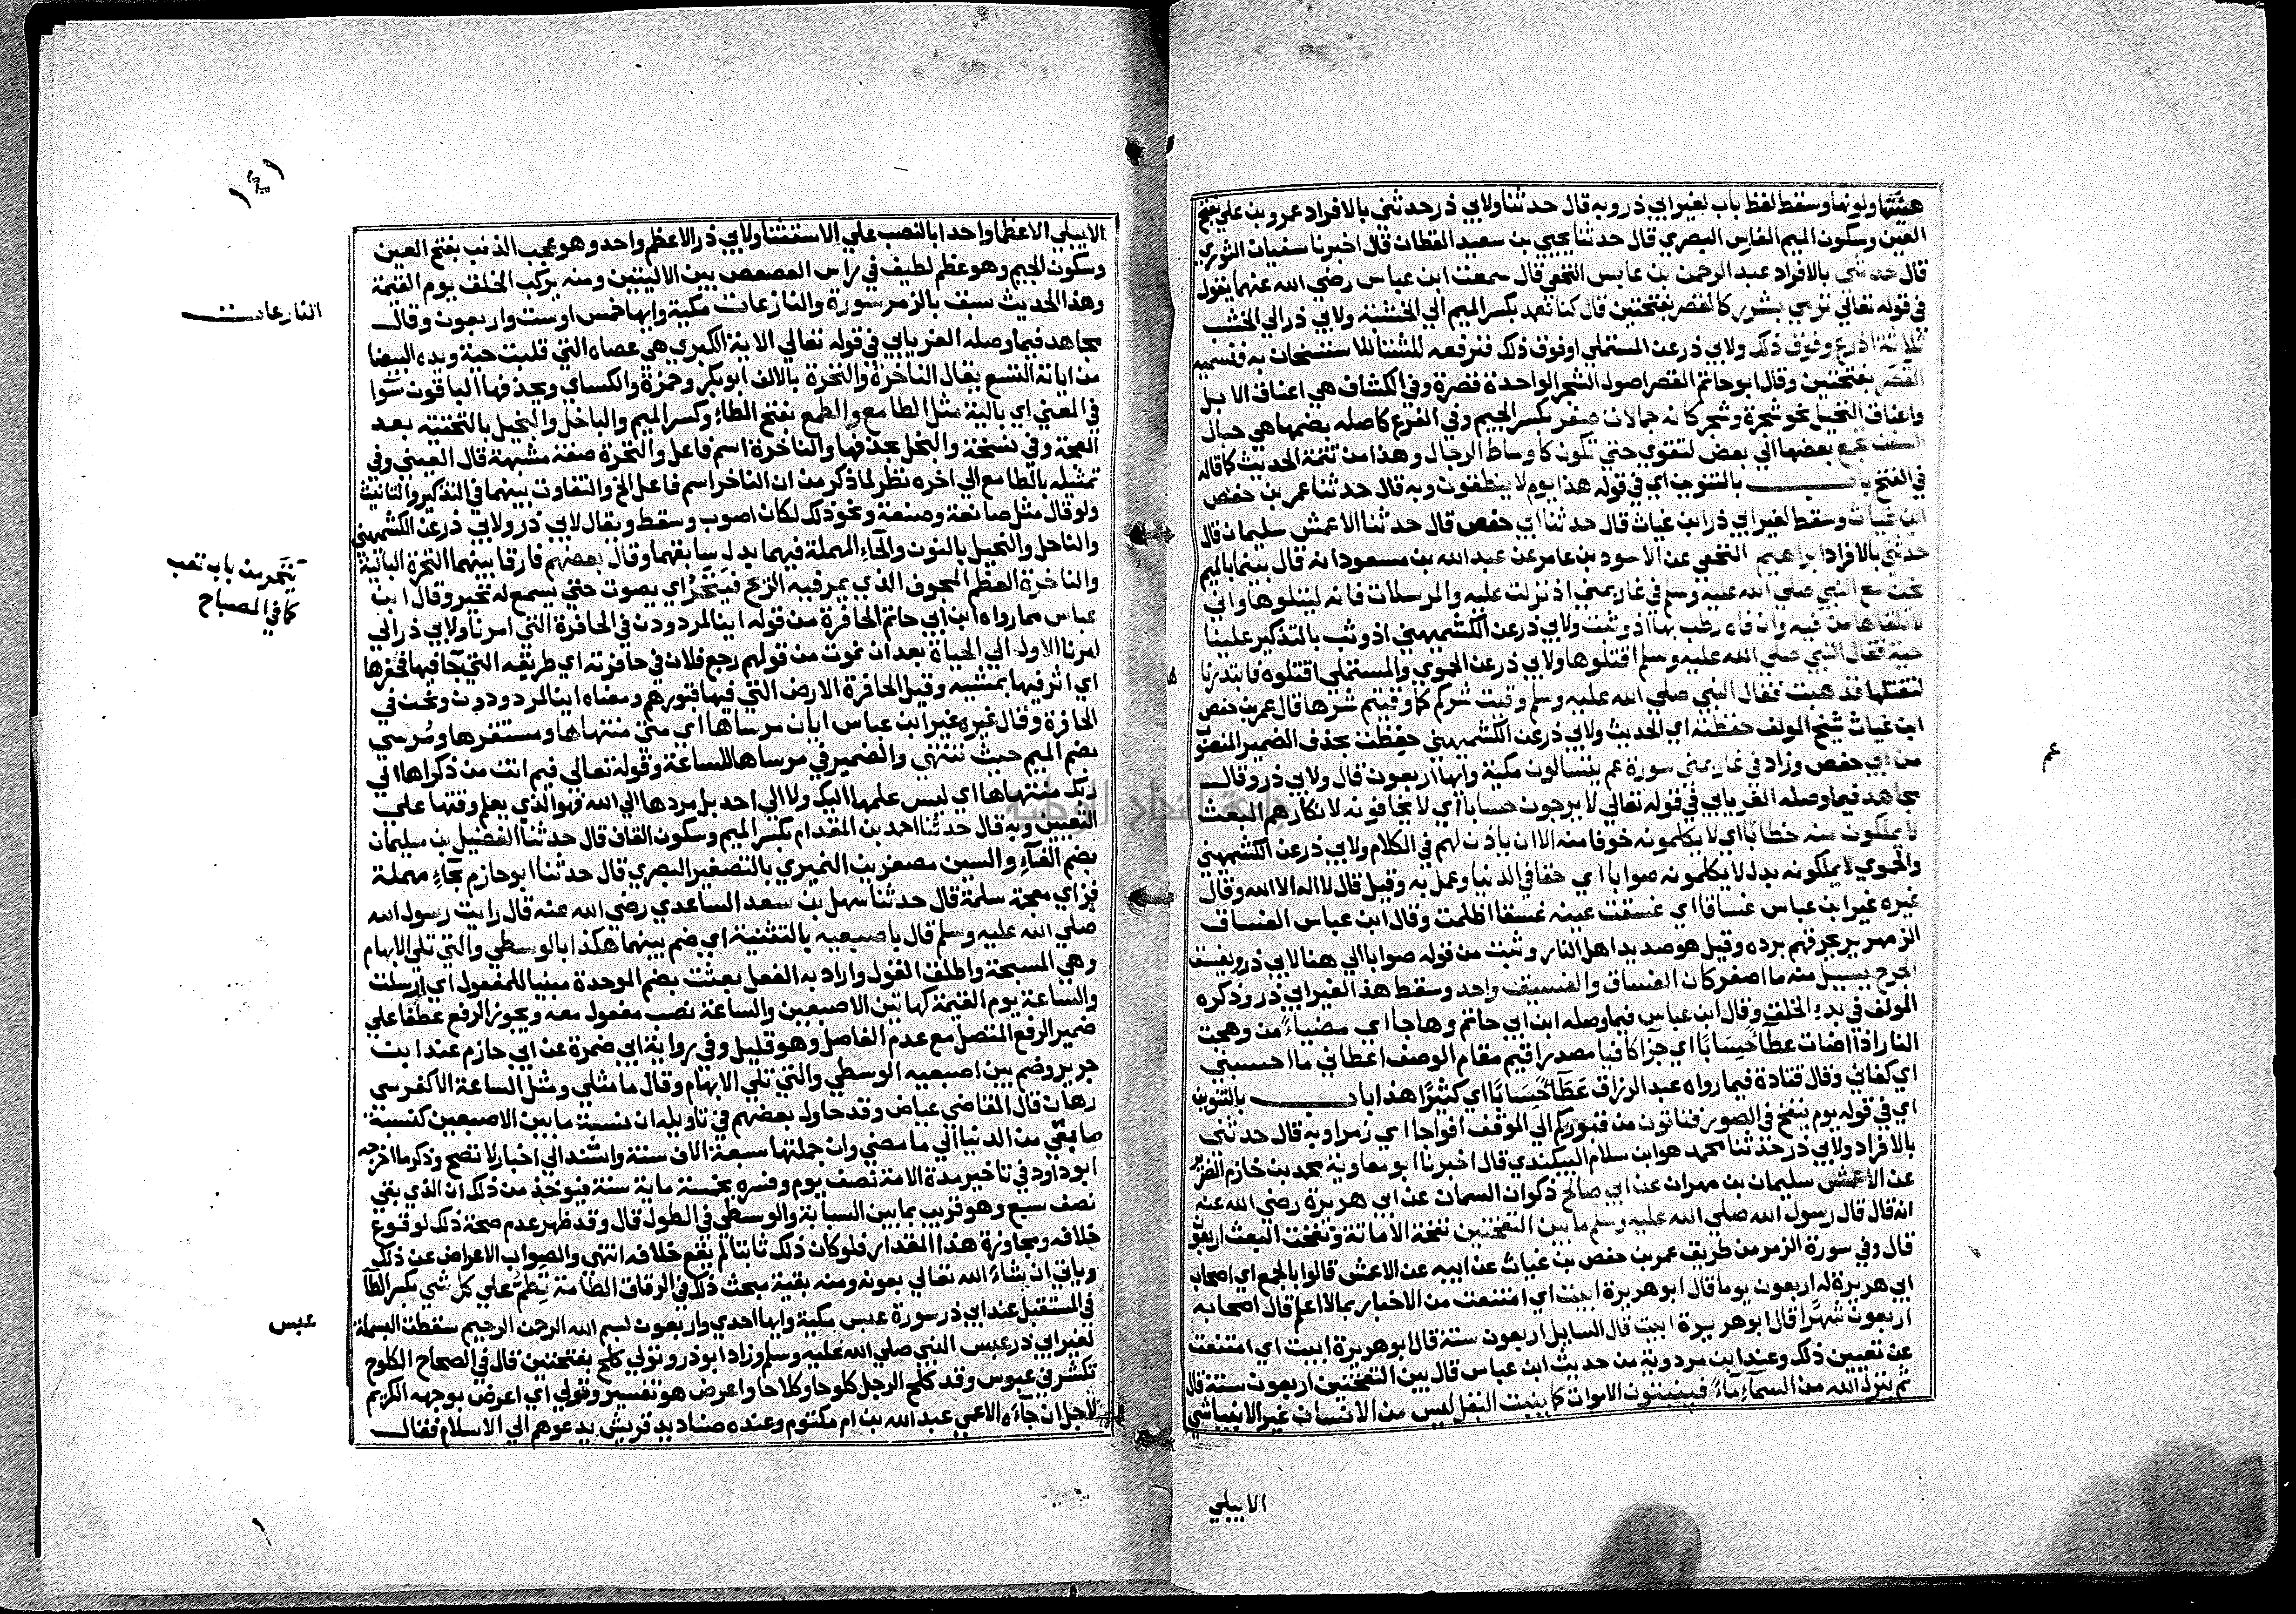 هيئتها ولونها وسقط لفظ باب لغير ابي ذر وبه قال حدثنا ولابي ذر حدثني بالافراد عمرو بن علي بفتح
العين وسكون الميم الفلاس البصري قال حدثنا يحيي بن سعيد القطان قال اخبرنا سفيان الثوري
قال حدثني بالافراد عبد الرحمن بن عابس النخعي قال سمعت ابن عباس رضي الله عنهما يقول
في قوله تعالي ترمي بشرر كالقصر بفتحتين قال كنا نعمد بكسر الميم الي الخشبة ولابي ذر الي الخشب
ثلاثة اذرع وفوق ذلك ولابي ذر عن المستملي او فوق ذلك فنرفعه للشتا للاستسخان به فنسميه
القصر بفتحتين وقال ابو حاتم القصر اصول الشجر الواحدة قصرة وفي الكشاف هي اعناق الابل
واعناق النخيل نحو شجرة وشجر كانه جمالات صفر بكسر الجيم وفي الفرع كاصله بضمها هي حبال
السفن تجمع بعضها الي بعض لتقوي حتي تكون كاوساط الرجال وهذا من تتمة الحديث كما قاله
في الفتح باب بالتنوين اي في قوله هذا يوم لا ينطقون وبه قال حدثنا عمر بن حفص
ابن غياث وسقط لغير ابي ذر ابن غياث قال حدثنا ابي حفص قال حدثنا الاعمش سليمان قال
حدثني بالافراد ابراهيم النخعي عن الاسود بن عامر عن عبد الله بن مسعود انه قال بينما بالميم
نحن مع النبي صلي الله عليه وسلم في غار بمني اذ نزلت عليه والمرسلات فانه ليتلوها واني
لاتلقاها من فيه وان فاه رطب بها اذ وثبت ولابي ذر عن الكشميهني اذ وثب بالتذكير علينا
حية فقال النبي صلي الله عليه وسلم اقتلوها ولابي ذر عن الحموي والمستملي اقتلوه فابتدرنا
لنقتلها فذهبت فقال النبي صلي الله عليه وسلم وقيت شركم كما وقيتم شرها قال عمر بن حفص
ابن غياث شيخ المولف حفظته اي الحديث ولابي ذر عن الكشميهني حفظت بحذف الضمير المنصوب
من ابي حفص وزاد في غار بمني سورة عم يتسالون مكية وايها اربعون قال ولابي ذر وقال
مجاهد فيما وصله الفريابي في قوله تعالي لا يرجون حسابا اي لا يخافونه لانكارهم البعث
لا يملكون منه خطابا اي لا يكلمونه خوفا منه الا ان ياذن لهم في الكلام ولابي ذر عن الكشميهني
والحموي لا يملكونه بدل لا يكلمونه صوابا اي حقا في الدنيا وعمل به وقيل قال لا اله الا الله وقال
غيره غير ابن عباس غساقا اي غسقت عينه غسقا اظلمت وقال ابن عباس الغساق
الزمهرير يحرقهم برده وقيل هو صديد اهل النار وثبت من قوله صوابا الي هنا لابي ذر ويغسق
الجرح يسيل منه ما اصفر كان الغساق والغسيق واحد وسقط هذا لغير ابي ذر وذكره
المولف في بدء الخلق وقال ابن عباس فيما وصله ابن ابي حاتم وهاجا اي مضيا من وهجت
النار اذا اضات عطآء حسابا اي جزآ كافيا مصدر اقيم مقام الوصف اعطاني ما احسبني
اي كفاني وقال قتادة فيما رواه عبد الرزاق عطآء حسابا اي كثيرا هذا باب بالتنوين
اي في قوله يوم ينفخ في الصور فتاتون من قبوركم الي الموقف افواجا اي زمرا وبه قال حدثني
بالافراد ولابي ذر حدثنا محمد هو ابن سلام البيكندي قال اخبرنا ابو معاوية محمد بن خازم الضرير
عن الاعمش سليمان بن مهران عن ابي صالح ذكوان السمان عن ابي هريرة رضي الله عنه
انه قال قال رسول الله صلي الله عليه وسلم ما بين النفختين نفخة الاماتة ونفخة البعث اربعون
قال وفي سورة الزمر من طريق عمر بن حفص بن غياث عن ابيه عن الاعمش قالوا بالجمع اي اصحاب
ابي هريرة له اربعون يوما قال ابو هريرة ابيت اي امتنعت من الاخبار بما لا اعلم قال اصحابه
اربعون شهرا قال ابو هريرة ابيت قال السايل اربعون سنة قال ابو هريرة ابيت اي امتنعت
عن تعيين ذلك وعند ابن مردوية من حديث ابن عباس قال بين النفختين اربعون سنة قال
ثم ينزل الله من السمآء مآء فينبتون الاموات كما ينبت البقل ليس من الانسان غير الانبيا شي
الا يبلي
عم
الا يبلي الا عظما واحدا بالنصب علي الاستثنا ولابي ذر الا عظم واحد وهو عجب الذنب بفتح العين
وسكون الجيم وهو عظم لطيف في راس العصعص بين الاليتين ومنه يركب الخلق يوم القيمة
وهذا الحديث سبق بالزمر سورة والنازعات مكية وايها خمس او ست واربعون وقال
مجاهد فيما وصله الفريابي في قوله تعالي الاية الكبري هي عصاه التي قلبت حية ويده البيضا
من اياته التسع يقال الناخرة والنخرة بالالف ابو بكر وحمزة والكساي وبحذفها الباقون سوا
في المعني اي بالية مثل الطامع والطمع بفتح الطاء وكسر الميم والباخل والبخيل بالتحتية بعد
المعجمة وفي نسخة والبخل بحذفها والناخرة اسم فاعل والنخرة صفة مشبهة قال العيني وفي
تمثيله بالطامع الي اخره نظر لما ذكر من ان الناخر اسم فاعل الخ والتفاوت بينهما في التذكير والتانيث
ولو قال مثل صانعة وصنعة ونحو ذلك لكان اصوب وسقط ويقال لابي ذر ولابي ذر عن الكشميهني
والناحل والنحيل بالنون والحاء المهملة فيهما بدل سابقهما وقال بعضهم فارقا بينهما النخرة البالية
والناخرة العظم المجوف الذي يمر فيه الريح فينخر اي يصوت حتي يسمع له نخير وقال ابن
عباس مما رواه ابن ابي حاتم الحافرة من قوله اينا لمردودون في الحافرة التي امرنا ولابي ذر الي
امرنا الاول الي الحياة بعد ان نموت من قولهم رجع فلان في حافرته اي طريقه التي جآ فيها فحفرها
اي اثر فيها بمشيه وقيل الحافرة الارض التي فيها قبورهم ومعناه اينا لمردودون ونحن في
الحافرة وقال غيره غير ابن عباس ايان مرساها اي متي منتهاها ومستقرها ومرسي
بضم الميم حيث تنتهي والضمير في مرساها للساعة وقوله تعالي فيم انت من ذكراها الي
ربك منتهاها اي ليس علمها اليك ولا الي احد بل مردها الي الله فهو الذي يعلم وقتها علي
التعيين وبه قال حدثنا احمد بن المقدام بكسر الميم وسكون القاف قال حدثنا الفضيل بن سليمان
بضم الفآء والسين مصغرين النميري بالتصغير البصري قال حدثنا ابو حازم بحآء مهملة
فزاي معجمة سلمة قال حدثنا سهل بن سعد الساعدي رضي الله عنه قال رايت رسول الله
صلي الله عليه وسلم قال باصبعيه بالتثنية اي ضم بينهما هكذا بالوسطي والتي تلي الابهام
وهي المسبحة واطلق القول واراد به الفعل بعثت بضم الموحدة مبنيا للمفعول اي ارسلت
والساعة يوم القيمة كهاتين الاصبعين والساعة نصب مفعول معه ويجوز الرفع عطفا علي
ضمير الرفع المتصل مع عدم الفاصل وهو قليل وفي رواية ابي ضمرة عن ابي حازم عند ابن
جرير وضم بين اصبعيه الوسطي والتي تلي الابهام وقال ما مثلي ومثل الساعة الا كفرسي
رهان قال القاضي عياض وقد حاول بعضهم في تاويله ان نسبة ما بين الاصبعين كنسبة
ما بقي من الدنيا الي ما مضي وان جملتها سبعة الاف سنة واستند الي اخبار لا تصح وذكر ما اخرجه
ابو داود في تاخير مدة الامة نصف يوم وفسره بخمسة ماية سنة فيوخذ من ذلك ان الذي بقي
نصف سبع وهو قريب مما بين السبابة والوسطي في الطول قال وقد ظهر عدم صحة ذلك لوقوع
خلافه ومجاوزة هذا المقدار فلو كان ذلك ثابتا لم يقع خلافه انتهي والصواب الاعراض عن ذلك
وياتي ان يشاء الله تعالي بعونه ومنه بقية مبحث ذلك في الرقاق الطامة تطم علي كل شي بكسر الطآ
في المستقبل عند ابي ذر سورة عبس مكية وايها احدي واربعون بسم الله الرحمن الرحيم سقطت البسملة
لغير ابي ذر عبس النبي صلي الله عليه وسلم وزاد ابو ذر وتولي كلح بفتحتين قال في الصحاح الكلوح
تكشر في عبوس وقد كلح الرجل كلوحا وكلاحا واعرض هو تفسير وتولي اي اعرض بوجهه الكريم
لاجل ان جآءه الاعمي عبد الله بن ام مكتوم وعنده صناديد قريش يدعوهم الي الاسلام فقال
النازعات
ينخر من باب تعب
كما في المصباح
عبس